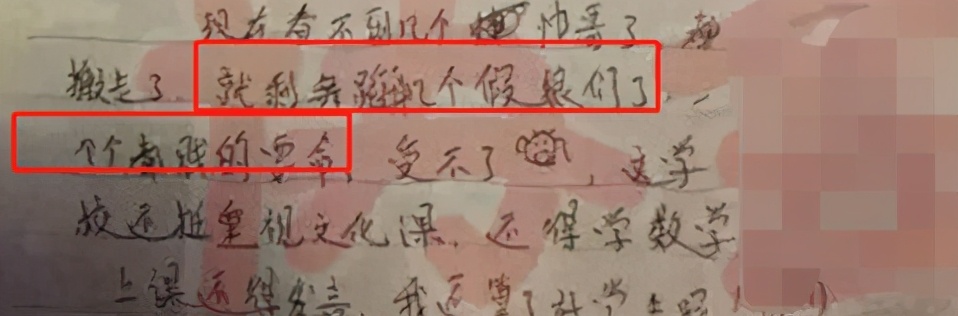 现在看不到几个帅哥了,都
搬走了,就剩舞蹈几个假娘们了,一
个个都骚的要命,受不了,这学
校还挺重视文化课,还得学数学
上课还得发言,我还当了